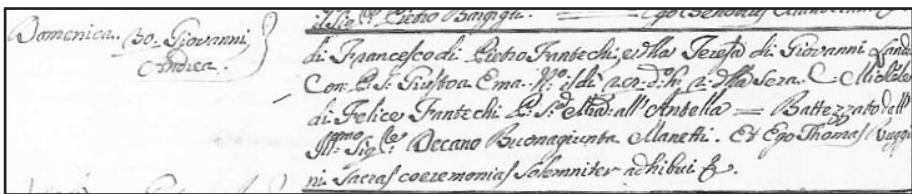 il Sig.re Pietro
Domenica. 30. Giovanni
Andrea.
di Francesco di Pietro Fantechi, e della Teresa di Giovanni Landi
Con. P. S. Giusto a Ema. N.o il dì d.o h. 2. della sera. C.
di Felice Fantechi P. S. all'Antella = Battezzato dall'
Ill.mo Sig.re Decano Buonagiunta Manetti. Et Ego Thomas Ruggi
ni. Sacras coeremonias solemniter adhibui &.